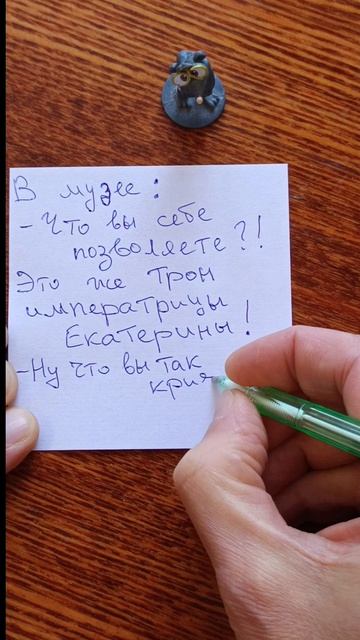 В музее:
- Что вы себе
позволяете?!
Это же трон
императрицы
Екатерины!
- Ну что вы так